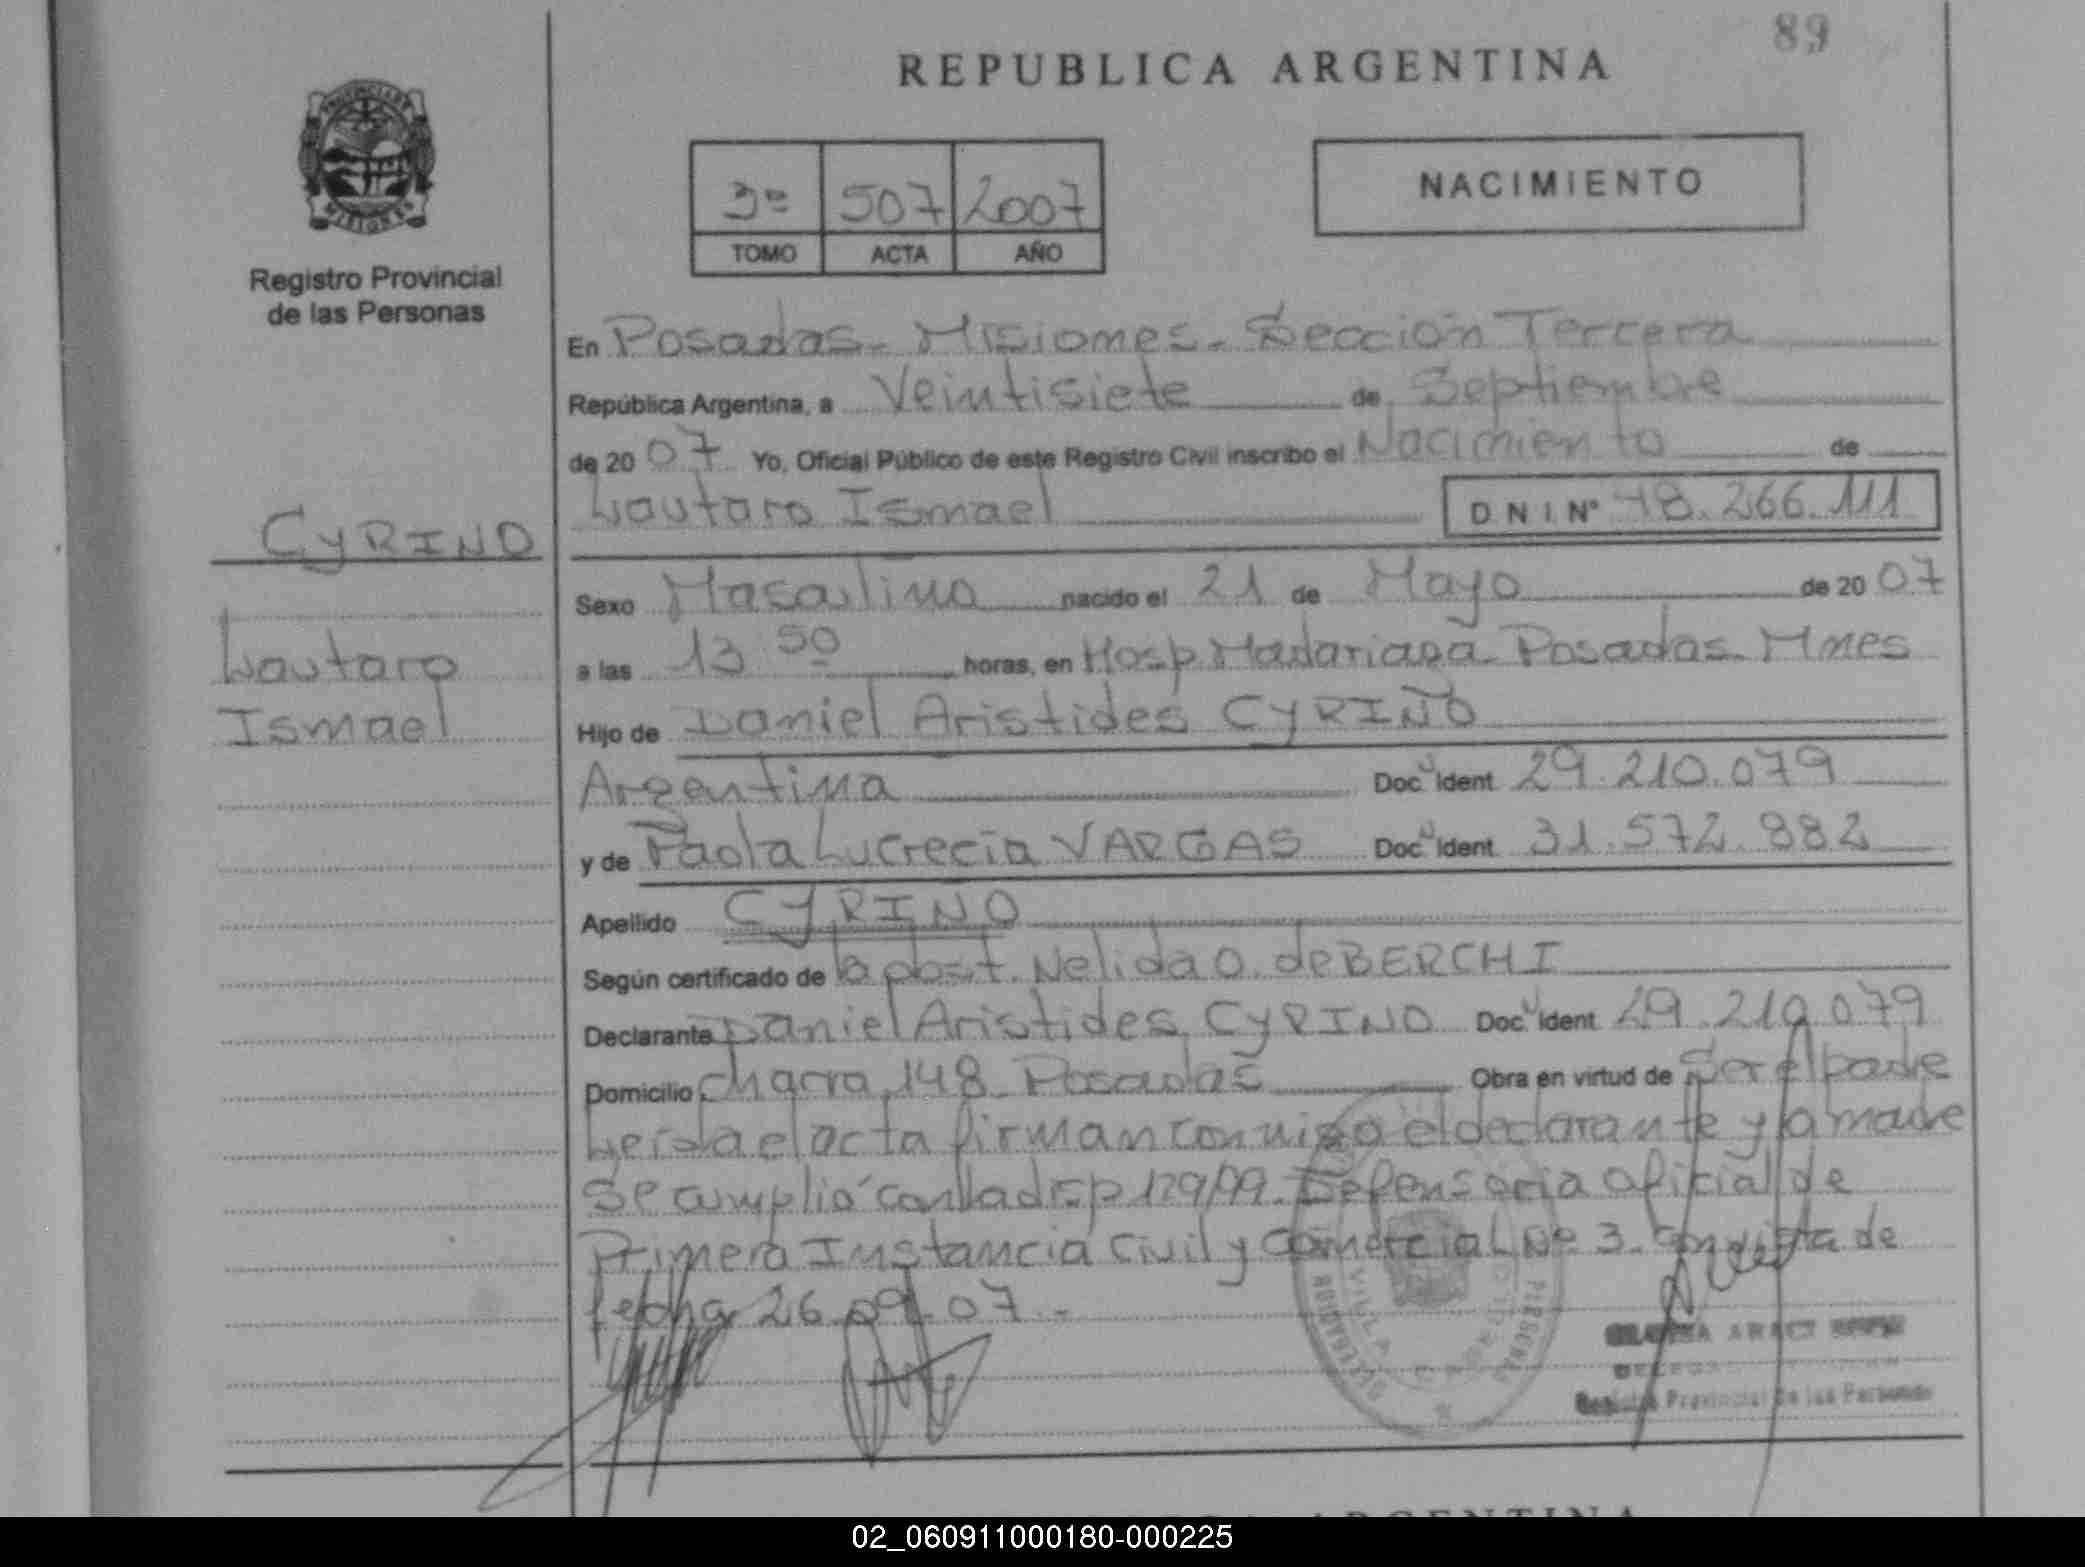 89
REPUBLICA ARGENTINA
3º 507 2007
TOMO ACTA AÑO
NACIMIENTO
PROVINCIA DE MISIONES
Registro Provincial
de las Personas
En Posadas - Misiones - Sección Tercera
República Argentina, a Veintisiete de Septiembre
de 20 07 Yo, Oficial Público de este Registro Civil inscribo el Nacimiento de
Lautaro Ismael DNI Nº 48.266.111
CYRINO
Lautaro
Ismael
Sexo Masculino nacido el 21 de Mayo de 20 07
a las 13 50 horas, en Hosp Madariaga Posadas Mnes
Hijo de Daniel Aristides CYRINO
Argentina Doc. Ident 29.210.079
y de Paola Lucrecia VARGAS Doc. Ident 31.572.882
Apellido CYRINO
Según certificado de la obst. Nelida O. de BERCHI
Declarante Daniel Aristides CYRINO Doc. Ident 29.210.079
Domicilio Chacra 148 Posadas Obra en virtud de Ser el padre
Leida el acta firman conmigo el declarante y la madre
Se cumplió con la disp 129/99. Defensoria oficial de
Primera Instancia Civil y Comercial Nº 3. con vista de
fecha 26.09.07.-
Registro Provincial de las Personas
ARGENTINA
02_060911000180-000225